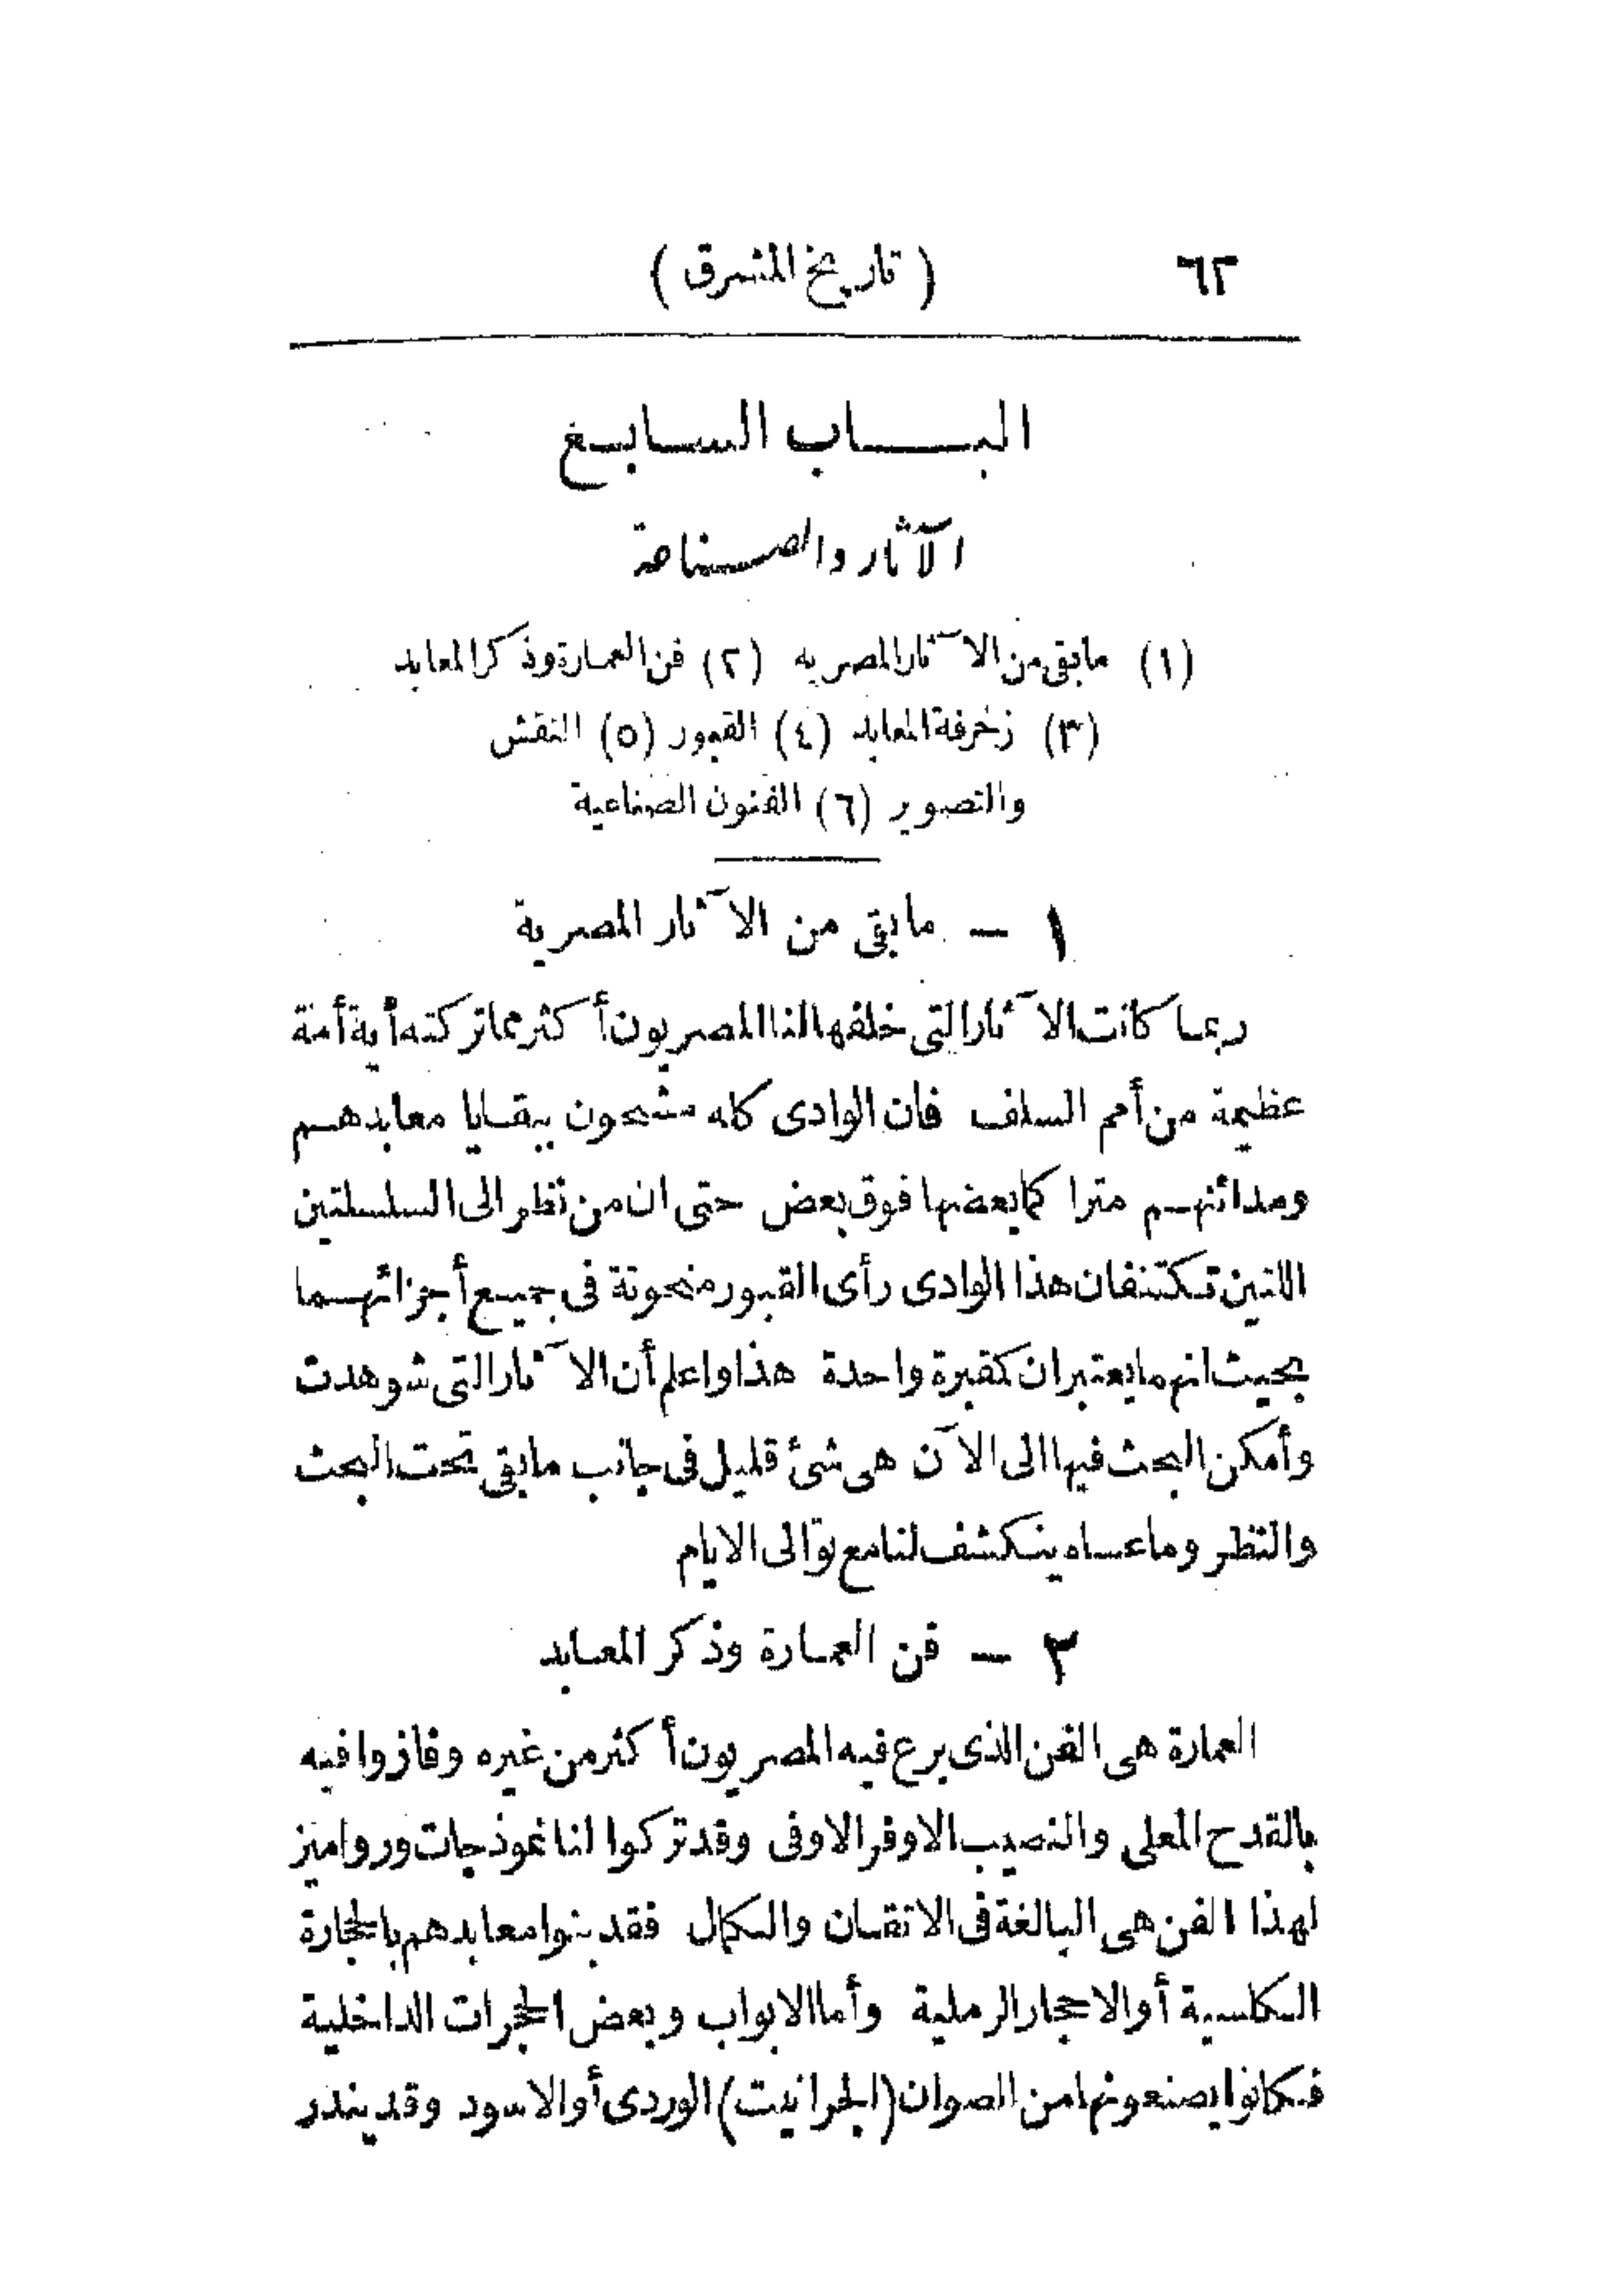 ٦٢ ( تاريخ المشرق )
البـــاب السابع
الآثار والصناعة
(١) مابقى من الآثار المصريه (٢) فن العمارة وذكر المعابد
(٣) زخرفة المعابد (٤) القبور (٥) النقش
والتصوير (٦) الفنون الصناعية
١ — مابقى من الآثار المصرية
ربما كانت الآثار التى خلفها لنا المصريون أكثر مما تركته أية أمة
عظيمة من أمم السلف فان الوادى كله مشحون ببقايا معابدهم
ومدائنهم متراكما بعضها فوق بعض حتى ان من نظر الى السلسلتين
اللتين تكتنفان هذا الوادى رأى القبور منحوتة فى جميع أجزائهما
بحيث انهما يعتبران كمقبرة واحدة هذا واعلم أن الآثار التى شوهدت
وأمكن البحث فيها الى الآن هى شئ قليل فى جانب مابقى تحت البحث
والنظر وما عساه ينكشف لنا مع توالى الايام
٢ — فن العمارة وذكر المعابد
العمارة هى الفن الذى برع فيه المصريون أكثر من غيره وفازوا فيه
بالقدح المعلى والنصيب الاوفر الاوفى وقد تركوا لنا نموذجات ورواميز
لهذا الفن هى البالغة فى الاتقان والكمال فقد بنوا معابدهم بالحجارة
الكلسية أو الاحجار الرملية وأما الابواب وبعض الحجرات الداخلية
فكانوا يصنعونها من الصوان (الجرانيت) الوردى أو الاسود وقد يندر